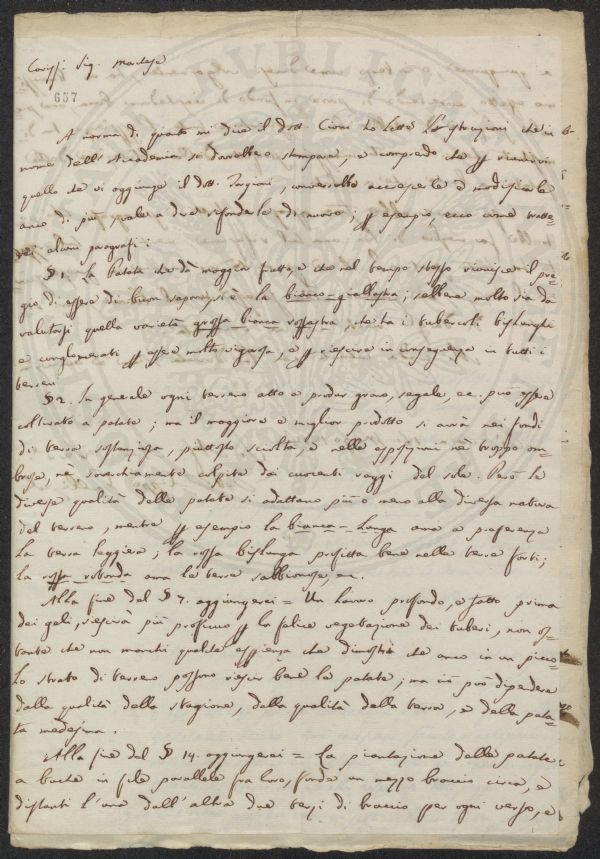 Cariss: Sig. Marchese
657
A norma di quanto mi dice il Dott. Cioni ho letto le istruzioni che in
nome dell'Accademia si dovrebbero stampare, e comprendo che p riunirvi
quello che vi aggiunge il Dott. Targioni, converrebbe accrescerle e modificarle
anco di più, vale a dire rifonderle di nuovo; p esempio, ecco come
alcuni paragrafi:
§ 1. La Patata che dà maggior frutto, e che nel tempo stesso riunisce il pre-
gio di essere di buon sapore, si è la bianco-giallastra; sebbene molto sia da
valutarsi quella varietà grossa bianca rossastra, che ha i tubercoli bislunghi
e conglomerati p esser molto vigorosa, e p riescire in conseguenza in tutti i
terreni
§ 2. In generale ogni terreno atto a produr grano, segale, ec. può essere
coltivato a patate; ma il maggiore e miglior prodotto si avrà nei fondi
di terra sostanziosa, piuttosto sciolta, e nelle esposizioni nè troppo om-
brose, nè soverchiamente colpite dai cuocenti raggi del sole. Però le
diverse qualità delle patate si adattano più o meno alla diversa natura
del terreno, mentre p esempio la bianca-lunga ama a preferenza
la terra leggiera; la rossa bislunga profitta bene nelle terre forti;
la rossa rotonda ama le terre sabbionose, ec.
Alla fine del § 7. aggiungerei = Un lavoro profondo, e fatto prima
dei geli, riescirà più proficuo p la felice vegetazione dei tuberi, non os-
tante che non manchi qualche esperienza che dimostri che anco in un picco-
lo strato di terreno possono riescir bene le patate; ma ciò può dipendere
dalla qualità della stagione, dalla qualità della terra, e della pata-
ta medesima.
Alla fine del § 14. aggiungerei = La piantazione delle patate
a buche in file parallele fra loro, fonde un mezzo braccio circa, e
distanti l'una dall'altra due terzi di braccio per ogni verso, è